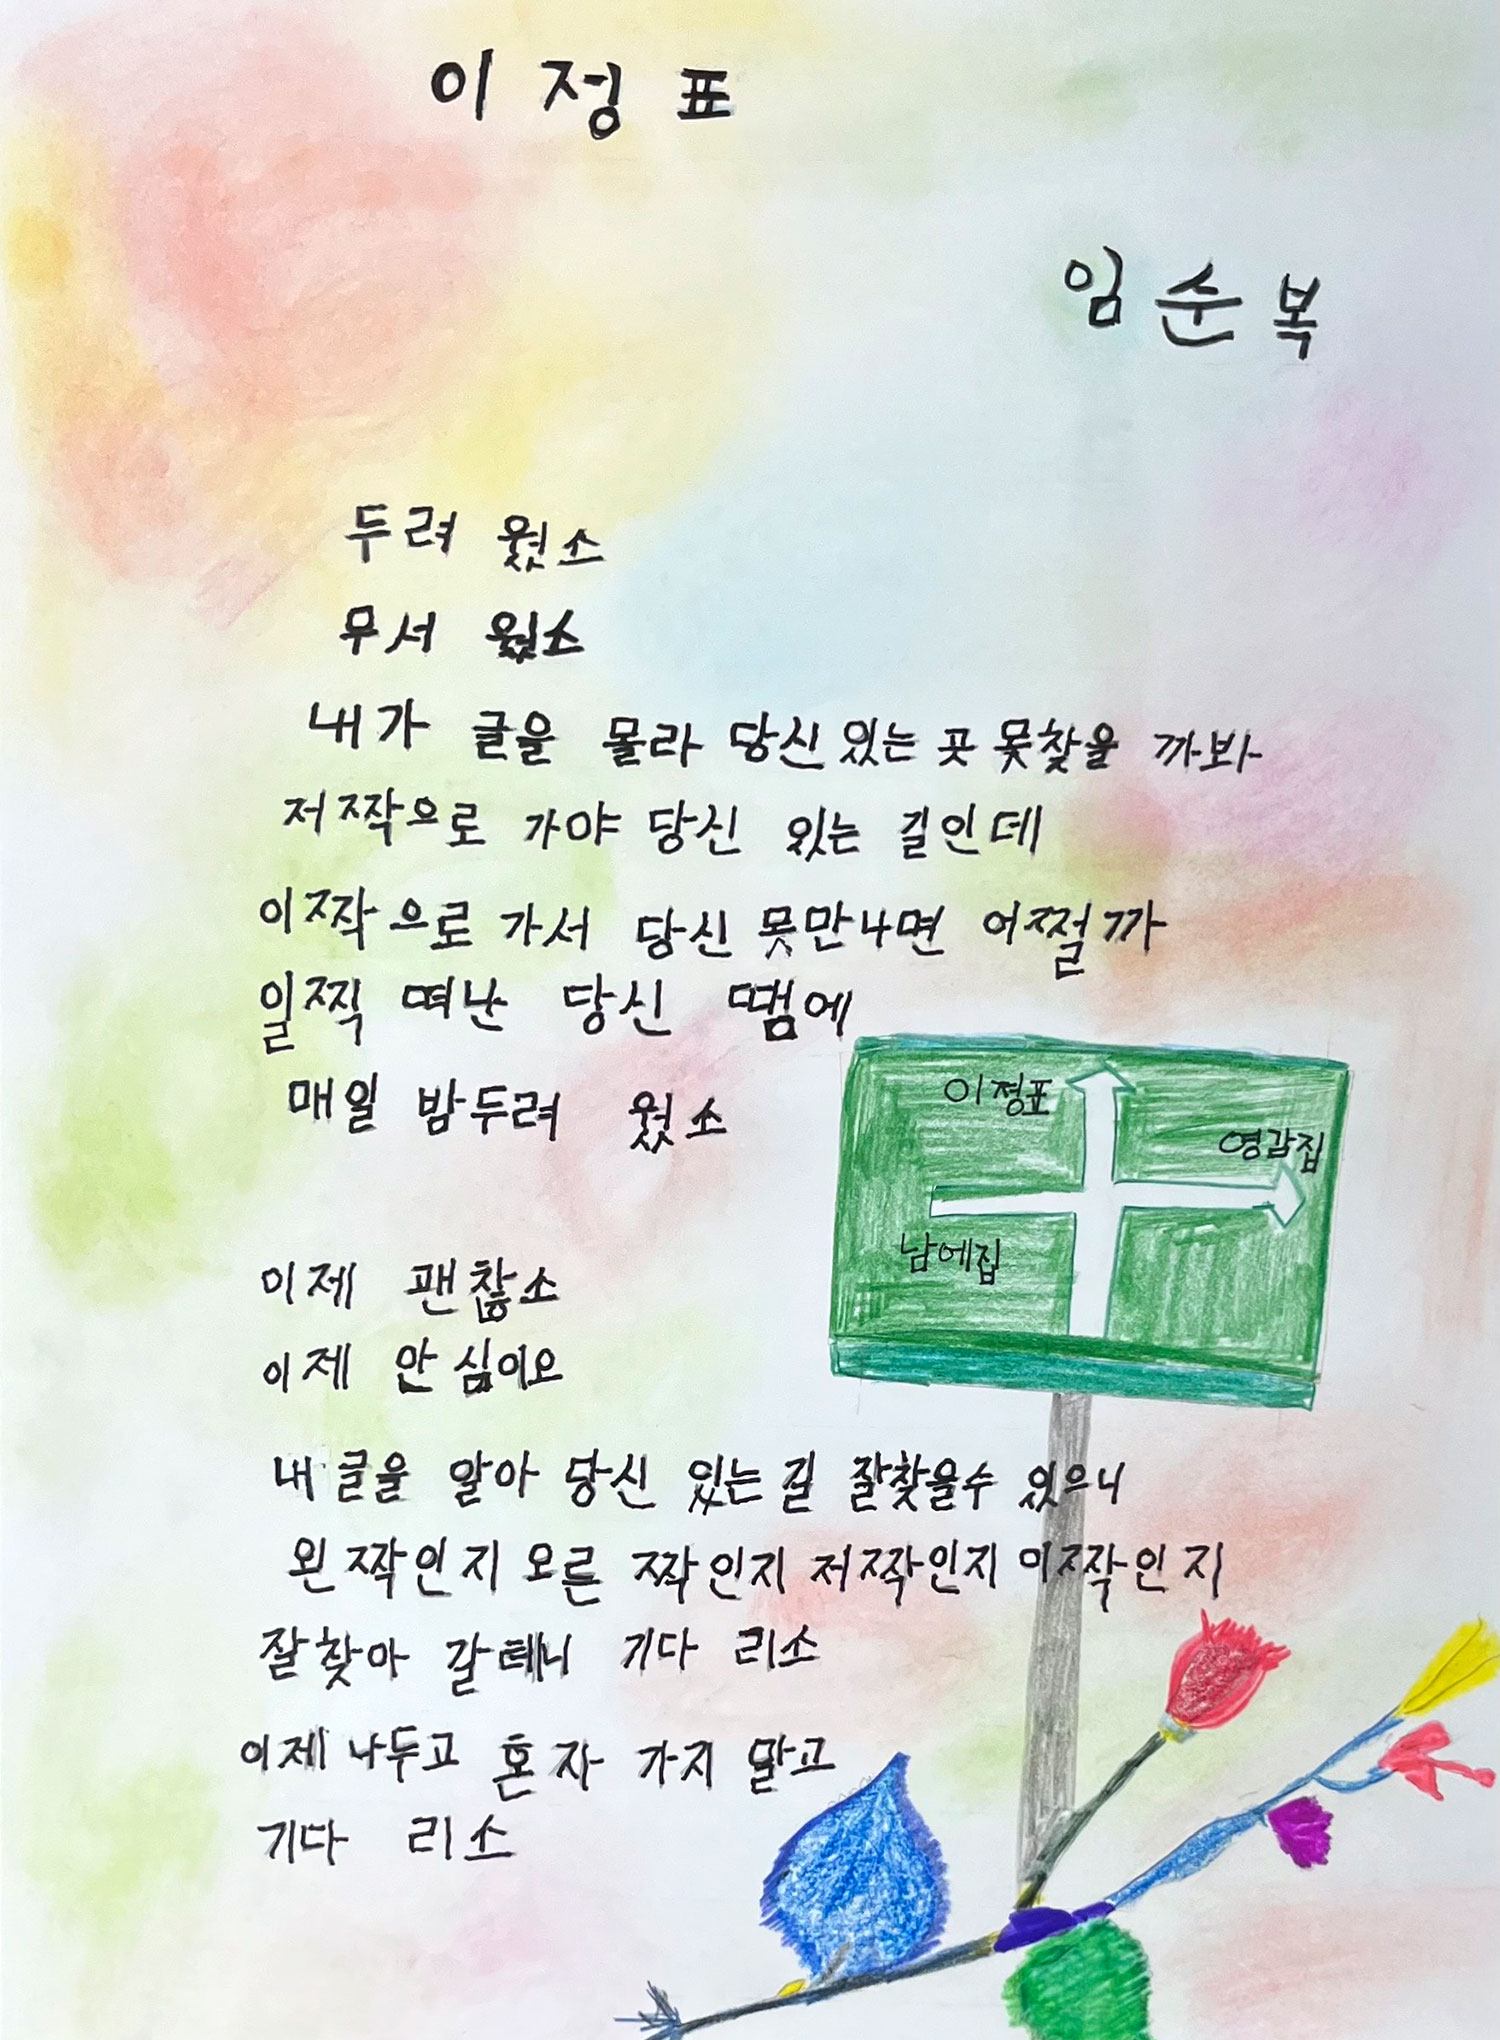 이정표
임순복
두려 웠소
무서 웠소
내가 글을 몰라 당신 있는 곳 못찾을 까봐
저짝으로 가야 당신 있는 길인데
이짝으로 가서 당신 못만나면 어쩔까
일찍 떠난 당신 땜에
매일 밤두려 웠소
이제 괜찮소
이제 안심이오
내 글을 알아 당신 있는 길 잘찾을수 있으니
왼짝인지 오른짝인지 저짝인지 이짝인지
잘찾아 갈테니 기다 리소
이제 나두고 혼자 가지 말고
기다 리소
이정표
영감집
남에집